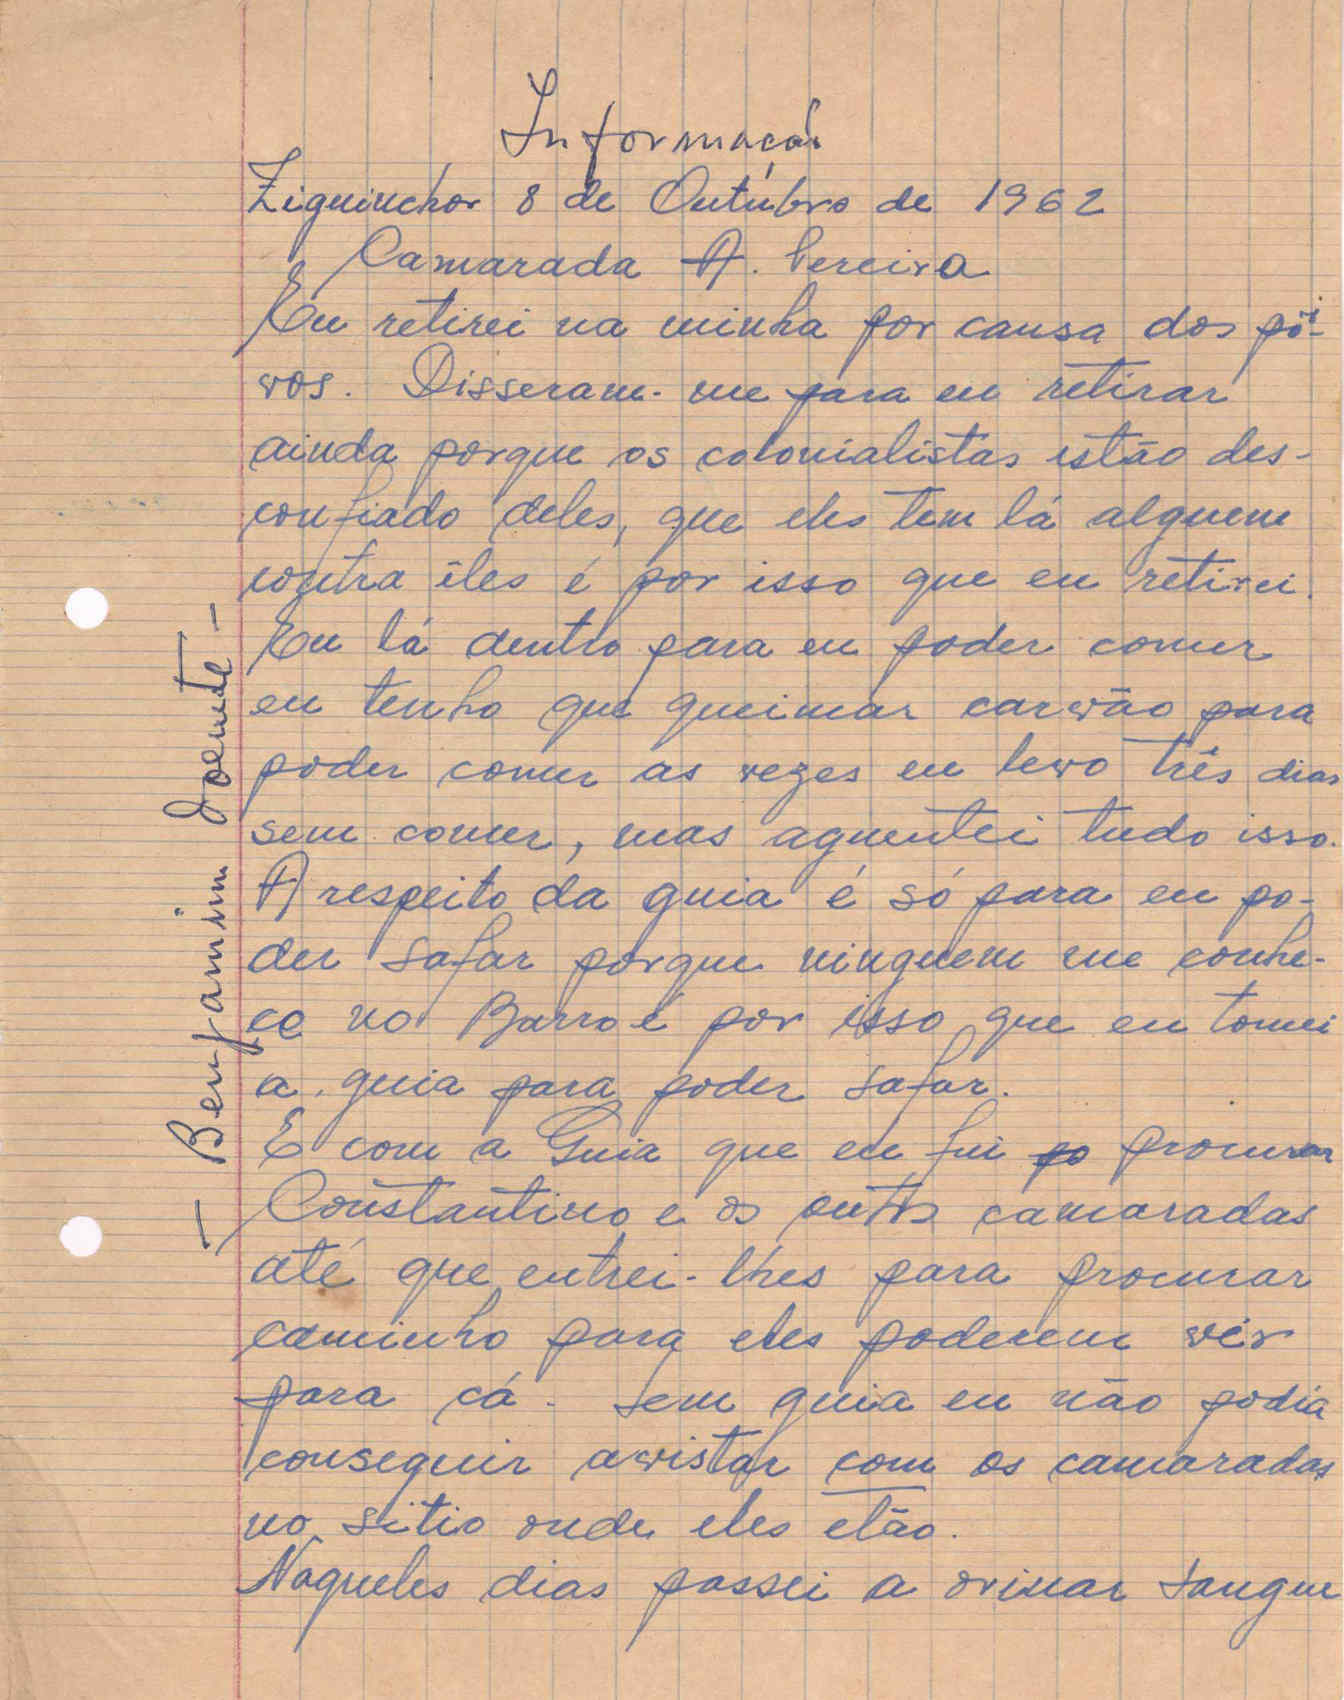 Informação
Ziguinchor 8 de Outúbro de 1962
Camarada A. Pereira
Eu retirei na minha por causa dos pô-
vos. Disseram-me para eu retirar
ainda porque os colonialistas estão des-
confiado deles, que eles tem lá alguem
contra êles é por isso que eu retirei.
Eu lá dentro para eu poder comer
eu tenho que queimar carvão para
poder comer as vezes eu levo três dias
sem comer, mas aguentei tudo isso.
A respeito da guia é só para eu po-
der safar porque ninguem me conhe-
ce no Barro é por isso que eu tomei
a guia para poder safar.
E com a Guia que eu fui procurar
Constantino e os outros camaradas
até que entrei-lhes para procurar
caminho para eles poderem vir
para cá. Sem guia eu não podia
conseguir avistar com os camaradas
no sitio onde eles etão.
Naqueles dias passei a orinar sangue
– Benjamim doente –